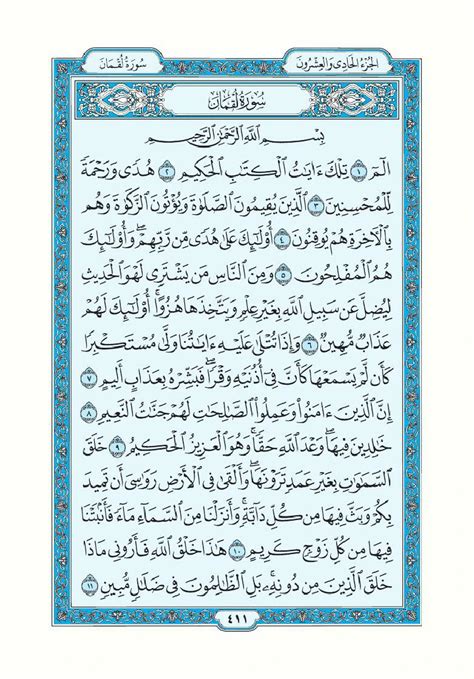 الجزء الحادي والعشرون
سورة لقمان
سُورَةُ لُقْمَانَ
بِسْمِ ٱللَّهِ ٱلرَّحْمَٰنِ ٱلرَّحِيمِ
الٓمٓ ١ تِلْكَ ءَايَٰتُ ٱلْكِتَٰبِ ٱلْحَكِيمِ ٢ هُدًى وَرَحْمَةً
لِّلْمُحْسِنِينَ ٣ ٱلَّذِينَ يُقِيمُونَ ٱلصَّلَوٰةَ وَيُؤْتُونَ ٱلزَّكَوٰةَ وَهُم
بِٱلْءَاخِرَةِ هُمْ يُوقِنُونَ ٤ أُو۟لَٰٓئِكَ عَلَىٰ هُدًى مِّن رَّبِّهِمْ ۖ وَأُو۟لَٰٓئِكَ
هُمُ ٱلْمُفْلِحُونَ ٥ وَمِنَ ٱلنَّاسِ مَن يَشْتَرِى لَهْوَ ٱلْحَدِيثِ
لِيُضِلَّ عَن سَبِيلِ ٱللَّهِ بِغَيْرِ عِلْمٍ وَيَتَّخِذَهَا هُزُوًا ۚ أُو۟لَٰٓئِكَ لَهُمْ
عَذَابٌ مُّهِينٌ ٦ وَإِذَا تُتْلَىٰ عَلَيْهِ ءَايَٰتُنَا وَلَّىٰ مُسْتَكْبِرًا
كَأَن لَّمْ يَسْمَعْهَا كَأَنَّ فِىٓ أُذُنَيْهِ وَقْرًا ۖ فَبَشِّرْهُ بِعَذَابٍ أَلِيمٍ ٧
إِنَّ ٱلَّذِينَ ءَامَنُوا۟ وَعَمِلُوا۟ ٱلصَّٰلِحَٰتِ لَهُمْ جَنَّٰتُ ٱلنَّعِيمِ ٨
خَٰلِدِينَ فِيهَا ۖ وَعْدَ ٱللَّهِ حَقًّا ۚ وَهُوَ ٱلْعَزِيزُ ٱلْحَكِيمُ ٩ خَلَقَ
ٱلسَّمَٰوَٰتِ بِغَيْرِ عَمَدٍ تَرَوْنَهَا ۖ وَأَلْقَىٰ فِى ٱلْأَرْضِ رَوَٰسِىَ أَن تَمِيدَ
بِكُمْ وَبَثَّ فِيهَا مِن كُلِّ دَآبَّةٍ ۚ وَأَنزَلْنَا مِنَ ٱلسَّمَآءِ مَآءً فَأَنۢبَتْنَا
فِيهَا مِن كُلِّ زَوْجٍ كَرِيمٍ ١٠ هَٰذَا خَلْقُ ٱللَّهِ فَأَرُونِى مَاذَا
خَلَقَ ٱلَّذِينَ مِن دُونِهِۦ ۚ بَلِ ٱلظَّٰلِمُونَ فِى ضَلَٰلٍ مُّبِينٍ ١١
٤١١